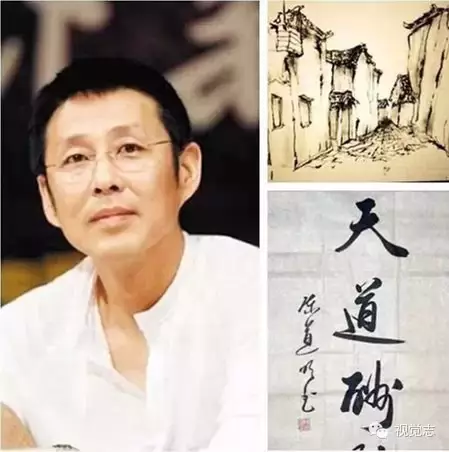 天
道
酬
陈道明书
视觉志